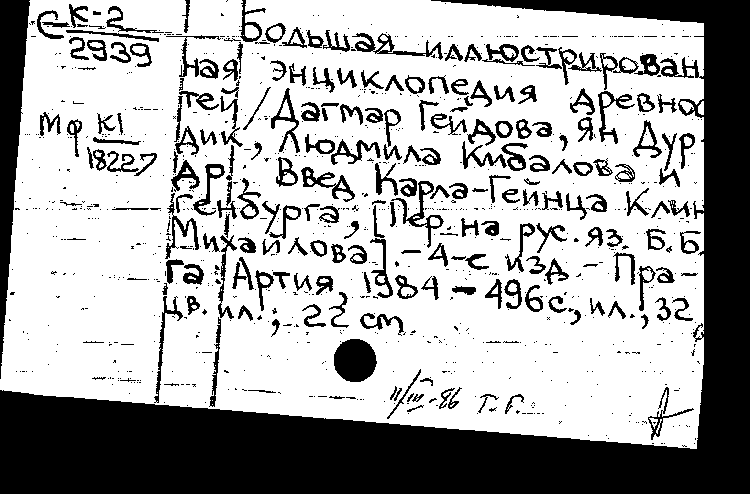 С К-2
2939
Мф К1
18227
Большая иллюстрирован
ная энциклопедия древнос
тей / Дагмар Гейдова, Ян Дур-
дик, Людмила Кибалова и
др.; Введ. Карла-Гейнца Клин
генбурга; [Пер. на рус. яз. Б.Б.
Михайлова]. - 4-е изд. - Пра-
га: Артия, 1984 - 496с., ил.; 32
цв. ил.; 22 cm.
11/III-86 Т.Г.